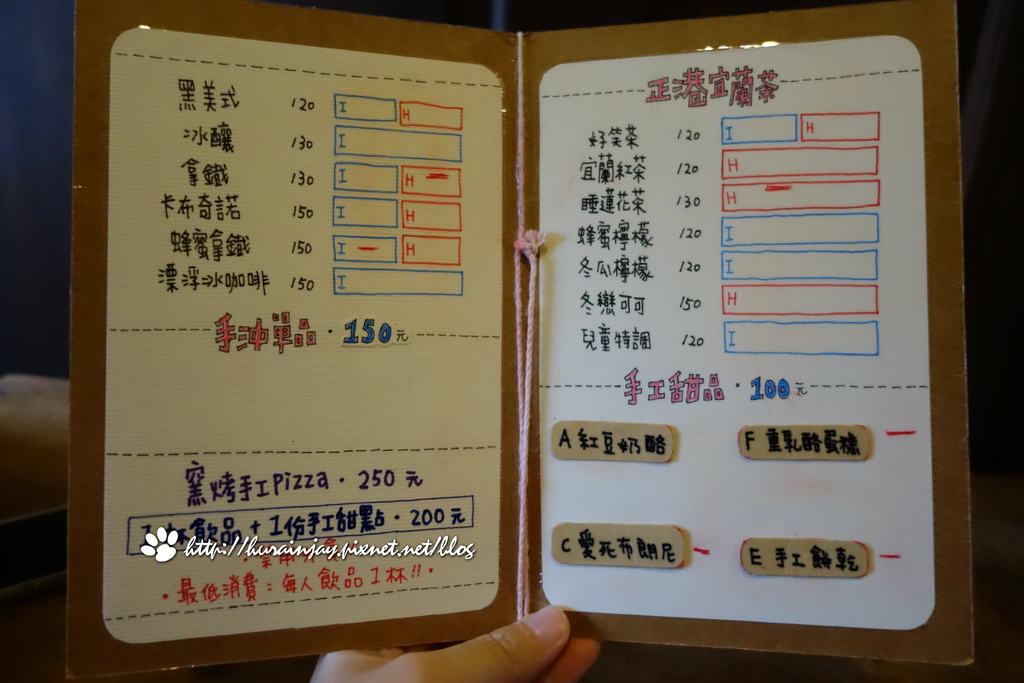 黑美式 120 I H
冰釀 130 I
拿鐵 130 I H
卡布奇諾 150 I H
蜂蜜拿鐵 150 I H
漂浮冰咖啡 150 I
手沖單品·150元
窯烤手工Pizza·250元
1杯飲品+1份手工甜點·200元
http://hurainjay.pixnet.net/blog
·最低消費:每人飲品1杯!!·
正港宜蘭茶
好笑茶 120 I H
宜蘭紅茶 120 H
睡蓮花茶 130 H
蜂蜜檸檬 120 I
冬瓜檸檬 120 I
冬戀可可 150 H
兒童特調 120 I
手工甜品·100元
A 紅豆奶酪
F 重乳酪蛋糕
C 愛死布朗尼
E 手工餅乾